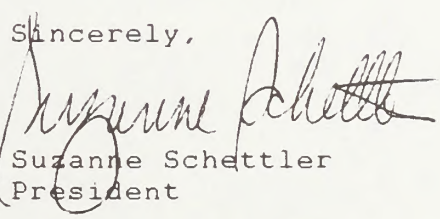 Sincerely,
Suzanne Schettler
Suzanne Schettler
President